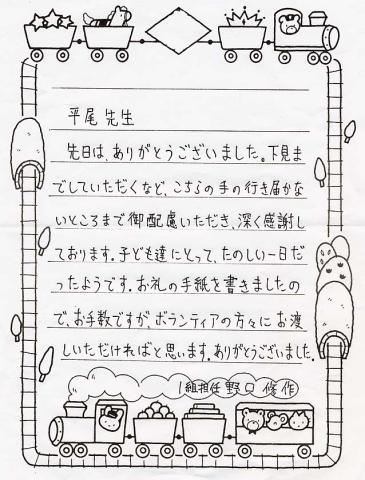 平尾先生
先日は、ありがとうございました。下見ま
でしていただくなど、こちらの手の行き届かな
いところまで御配慮いただき、深く感謝し
ております。子ども達にとって、たのしい一日だ
ったようです。お礼の手紙を書きましたの
で、お手数ですが、ボランティアの方々にお渡
しいただければと思います。ありがとうございました。
1組担任 野口 修作